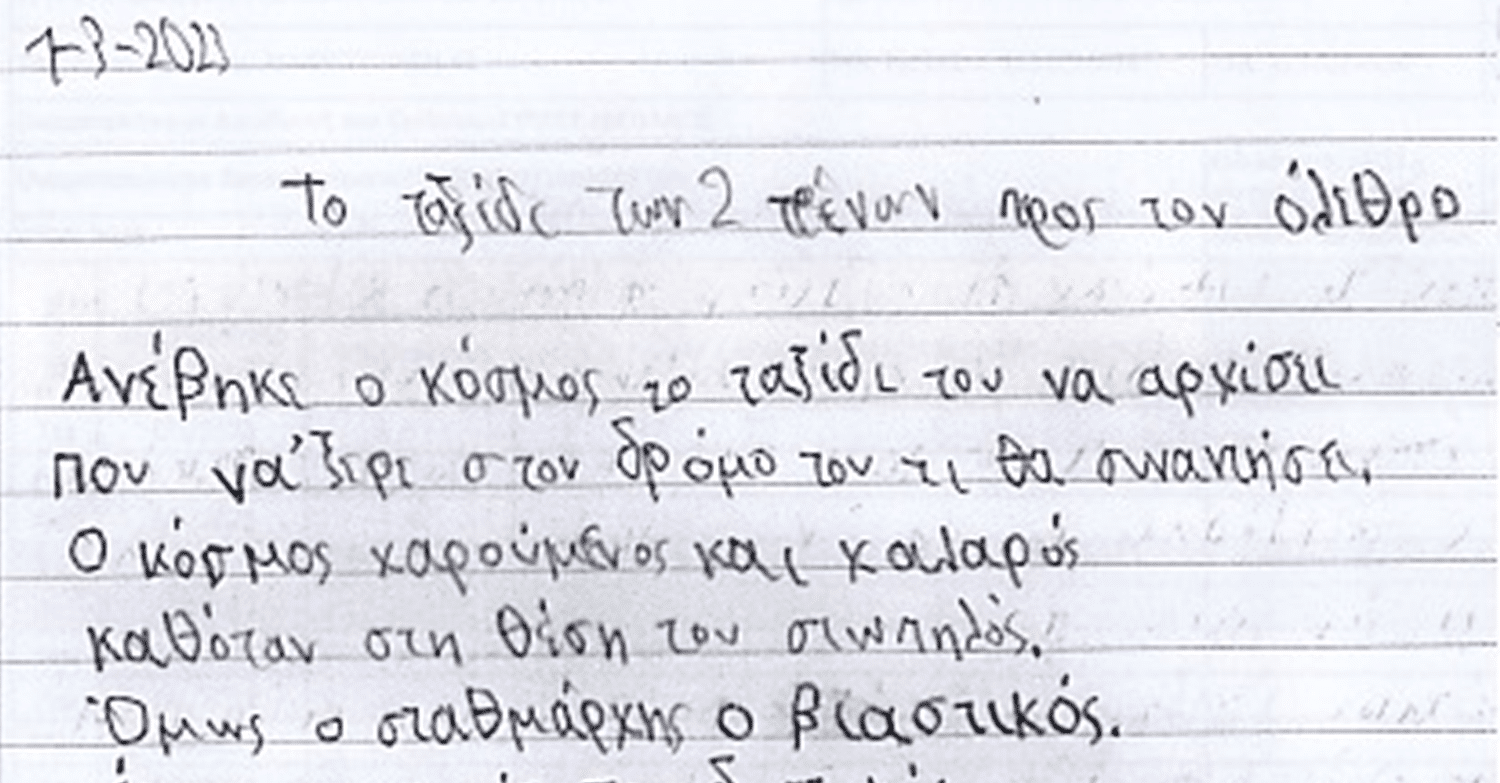 7-3-2023
Το ταξίδι των 2 τρένων προς τον όλεθρο
Ανέβηκε ο κόσμος το ταξίδι του να αρχίσει
που να 'ξερε στον δρόμο του τι θα συναντήσει.
Ο κόσμος χαρούμενος και χαλαρός
καθόταν στη θέση του σιωπηλός.
Όμως ο σταθμάρχης ο βιαστικός.